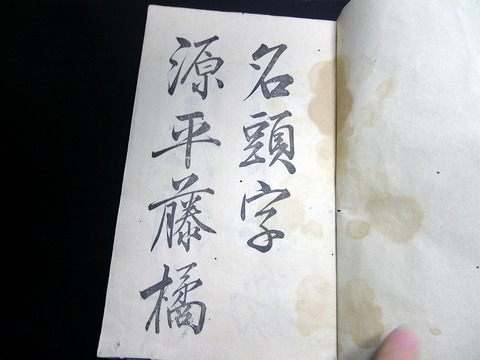 名頭字
源平藤橘